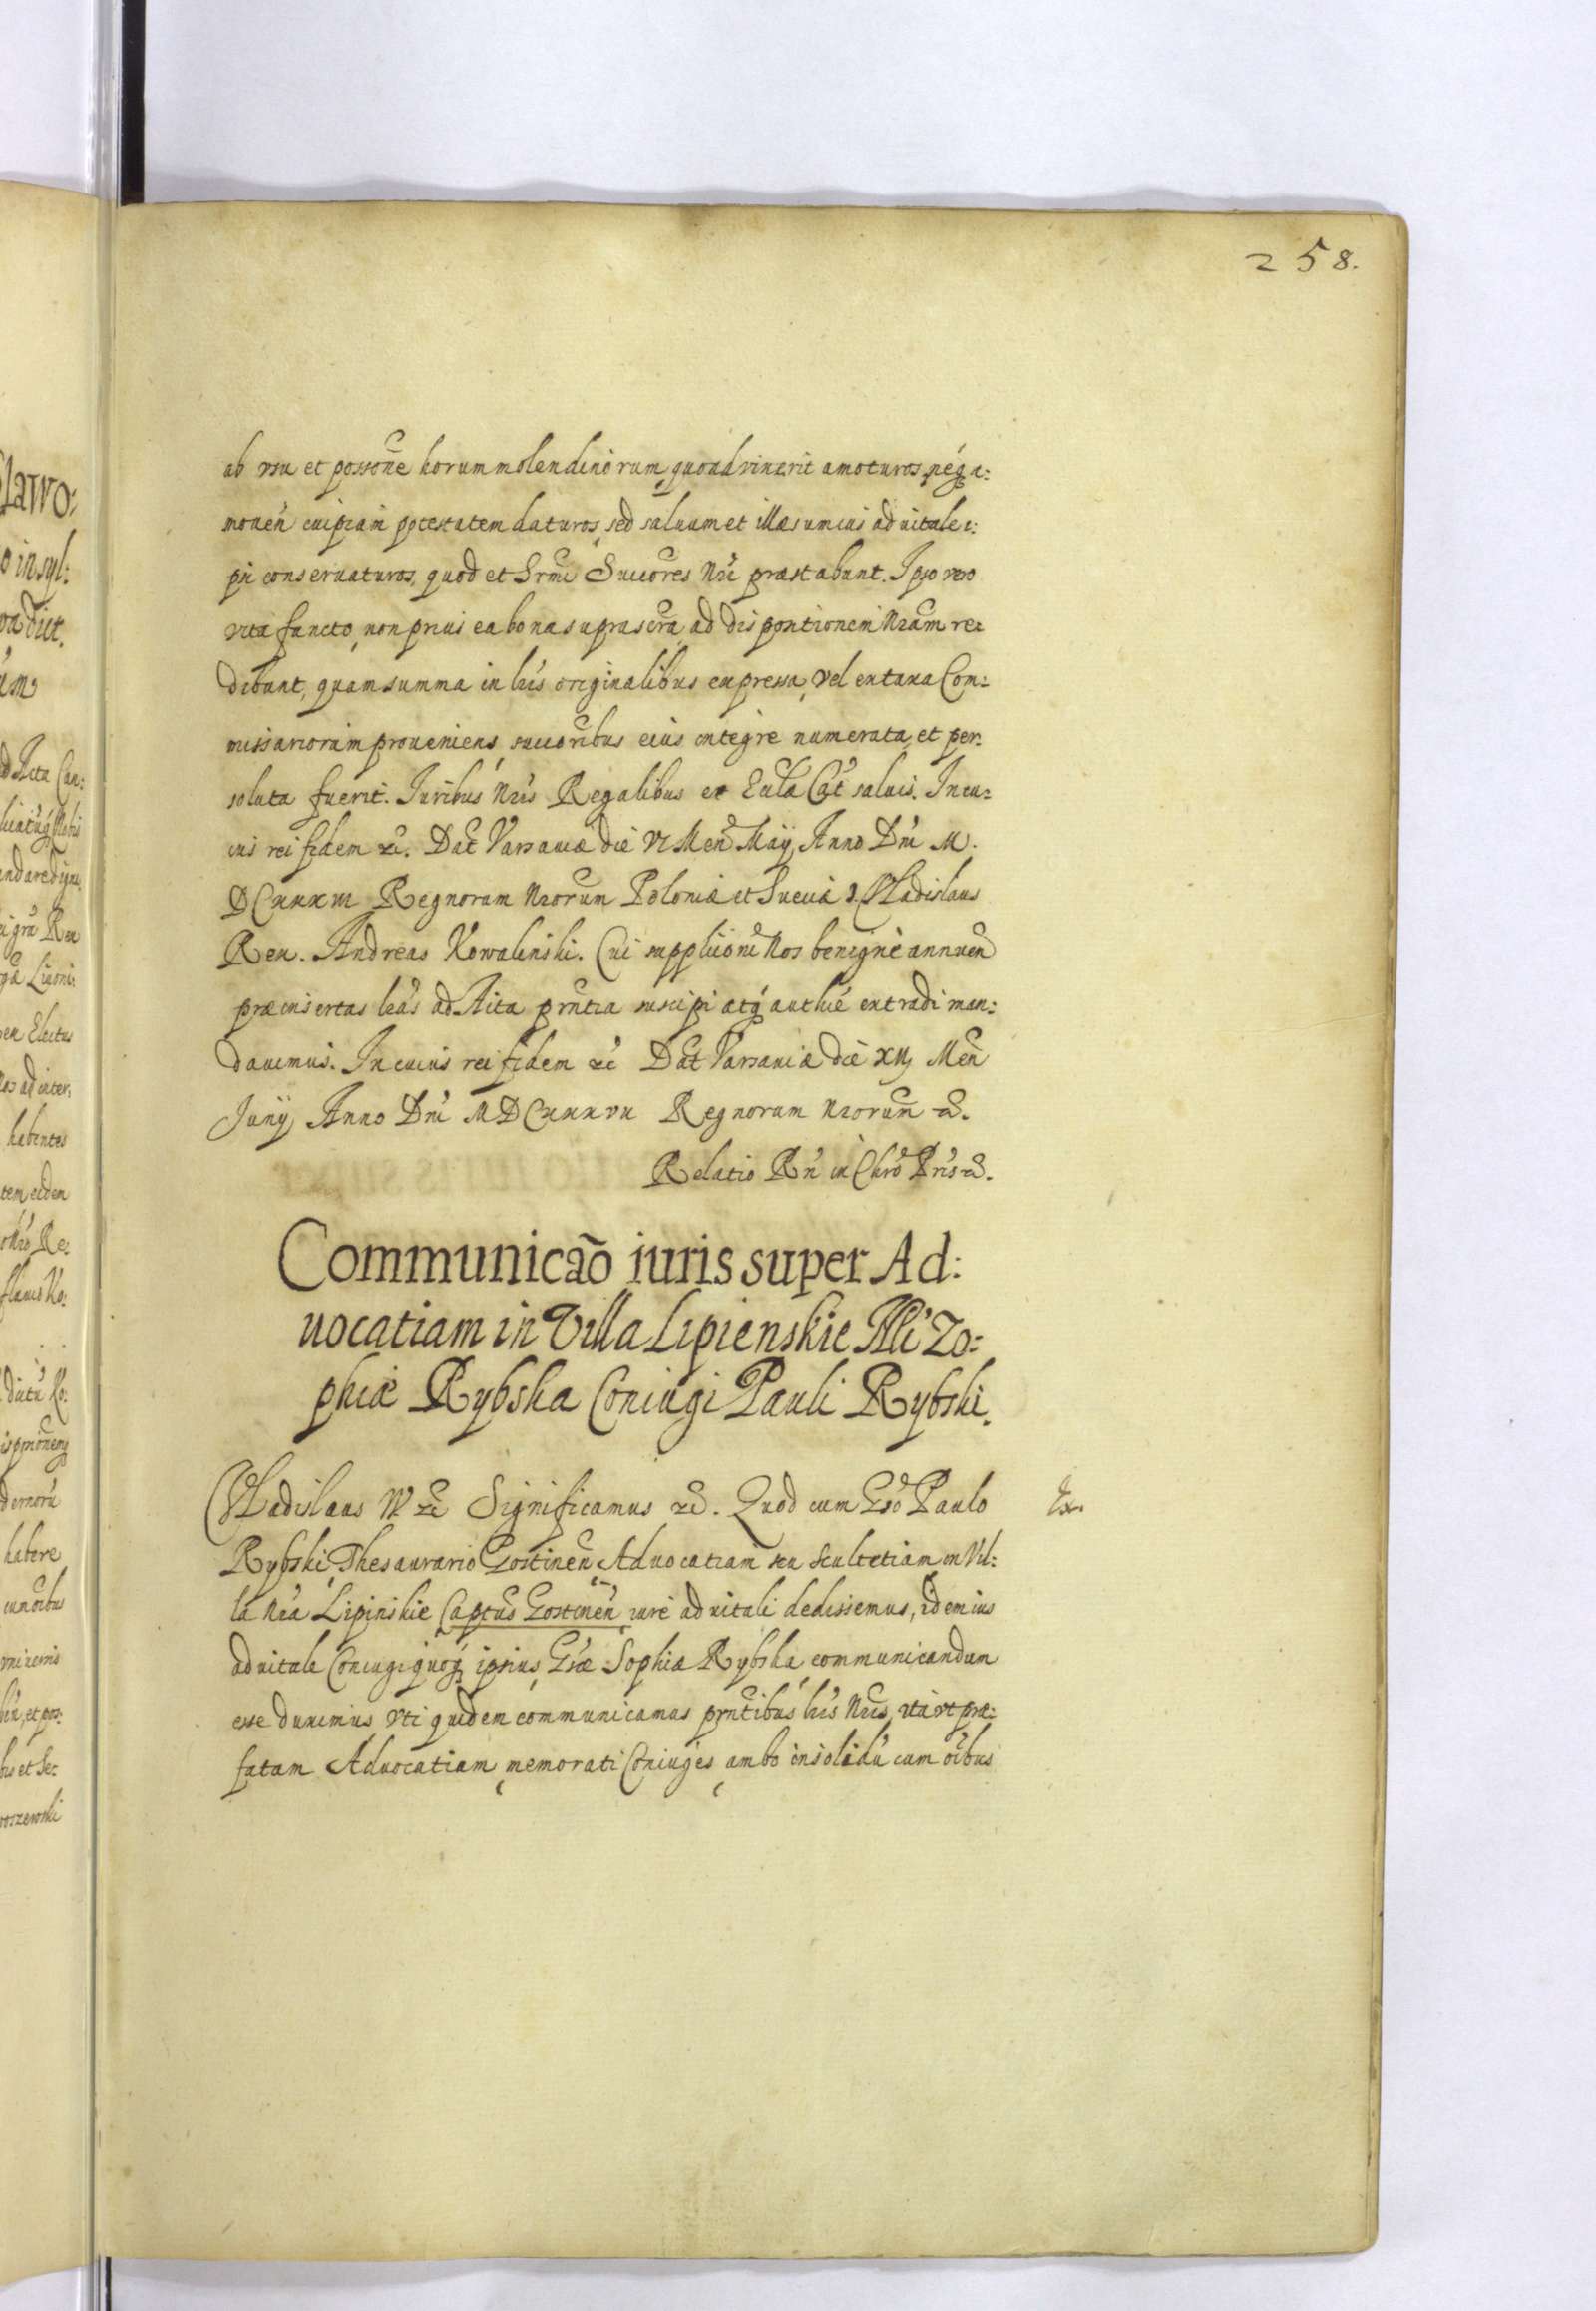 258.
ab vsu et possõne horum molendinorum quoad vixerit amoturos, neq́ a:
mouen̄ cuipiam potestatem daturos, sed saluum et illæsum ius aduitale i:
psi conseruaturos, quod et Srm̄i Succores Nr̄i præstabunt. Ipso vero
vita functo, non prius ea bona suprascr̄a ad dispositionem Nr̄am re:
dibunt, quam summa in lr̄is originalibus expressa, vel ex taxa Com:
missariorum proueniens, succoribus eius integre numerata et per:
soluta fuerit. Iuribus Nr̄is Regalibus et Eccl̄æ Cat̄ saluis. In cu:
ius rei fidem &c. Dat̄ Varsauiæ die VI Men̄ Maÿ Anno Dn̄i M.
DCXXXIII Regnorum Nr̄orum Poloniæ et Sueciæ I. Vladislaus
Rex. Andreas Kowalinski. Cui supplicōni Nos benigne annuen̄
præinsertas lr̄as ad Acta prn̄tia suscipi atq́ authē extradi man:
dauimus. In cuius rei fidem &c Dat̄ Varsauiæ die XII Men̄
Junÿ Anno Dn̄i MDCXXXVII Regnorum Nr̄orum &c.
Relatio Rn̄ in Chrō Pr̄is &c.
Communicaõ iuris super Ad:
uocatiam in Villa Lipienskie Nli Zo:
phiæ Rybska Coniugi Pauli Rybski.
Vladislaus IV &c Significamus &c. Quod cum Gsō Paulo
Ex.
Rybski Thesaurario Gostinen̄ Aduocatiam seu Scultetiam in Vil:
la Nr̄a Lipinskie Captus Gostinen̄ iure aduitali dedissemus, idem ius
aduitale Coniugi quoq́ ipsius Gsæ Sophiæ Rybska communicandum
esse duximus, vti quidem communicamus prn̄tibus lr̄is Nr̄is, ita vt præ:
fatam Aduocatiam memorati Coniuges ambo insolidū cum oībus